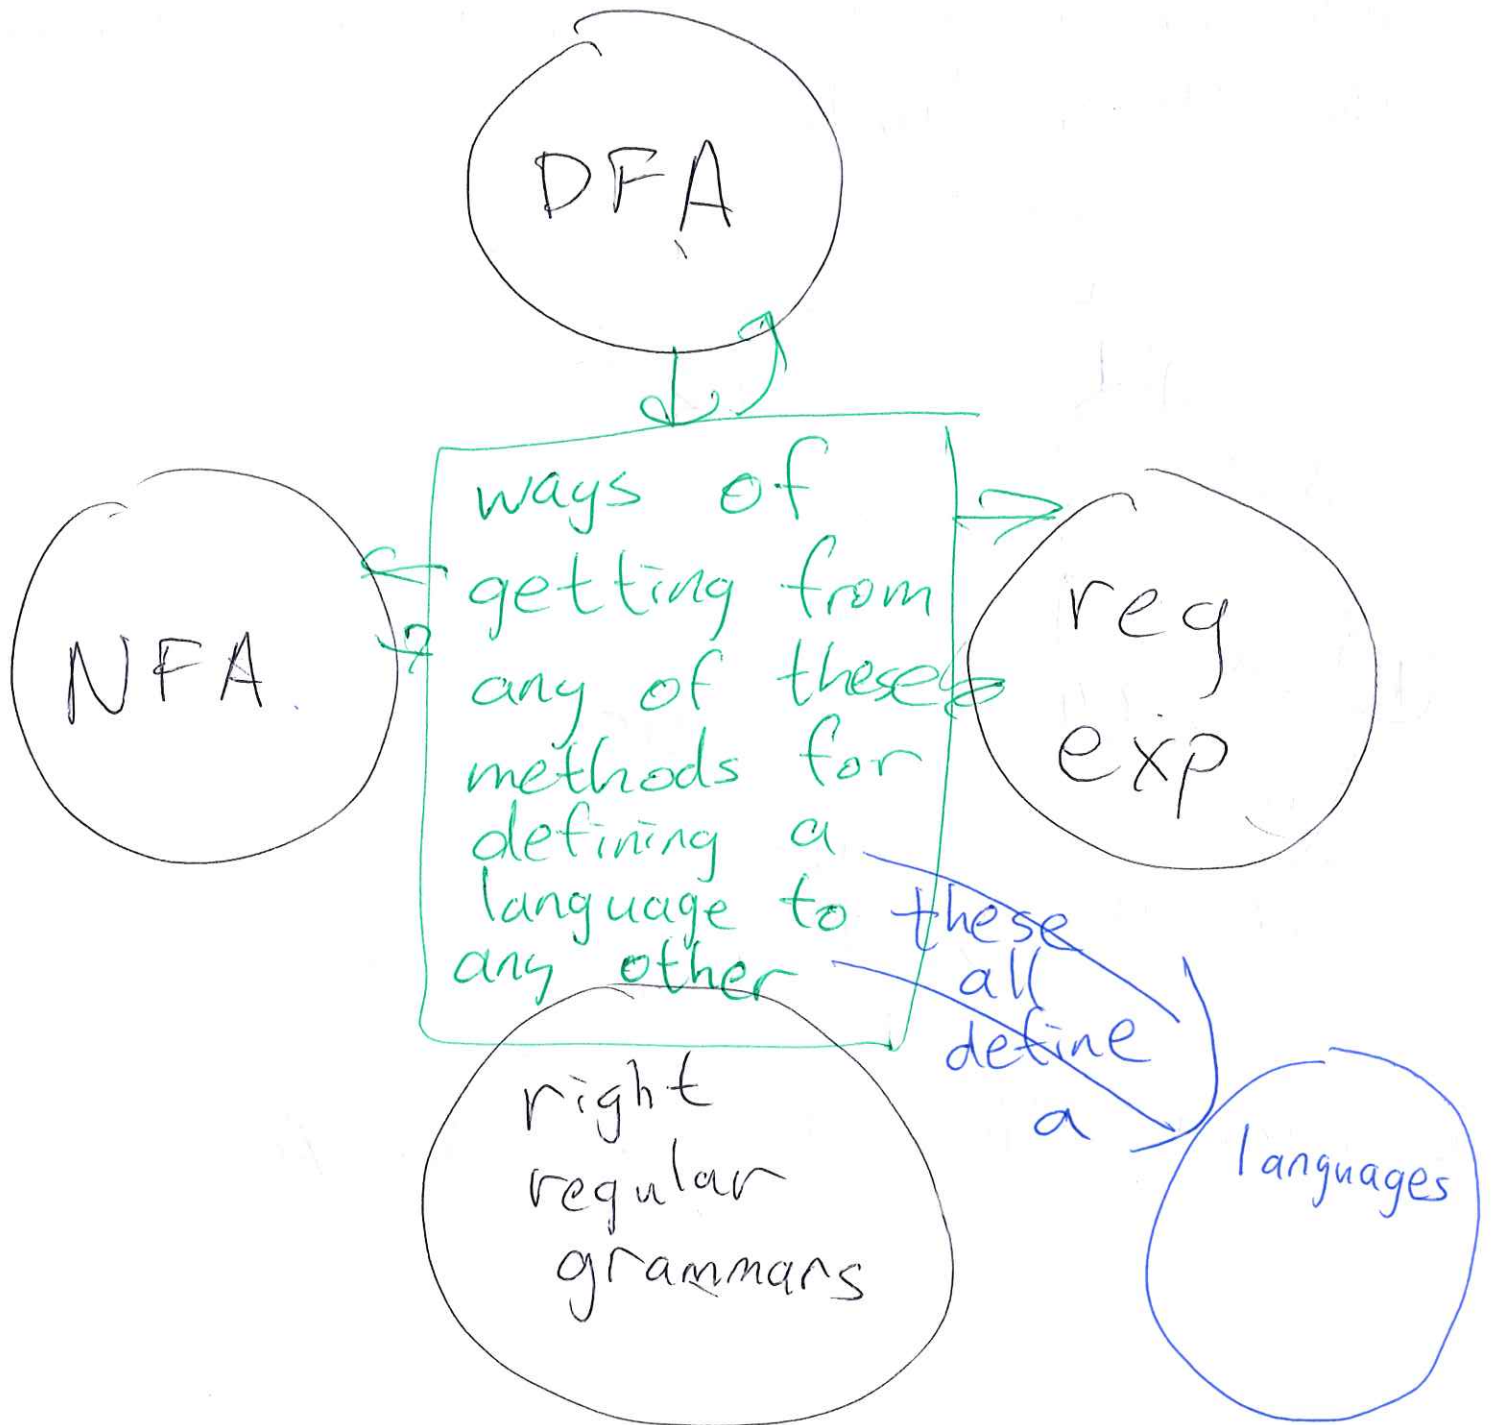 DFA
ways of
getting from
any of these
methods for
defining a
language to
any other
NFA
reg
exp
these
all
define
a
languages
right
regular
grammars